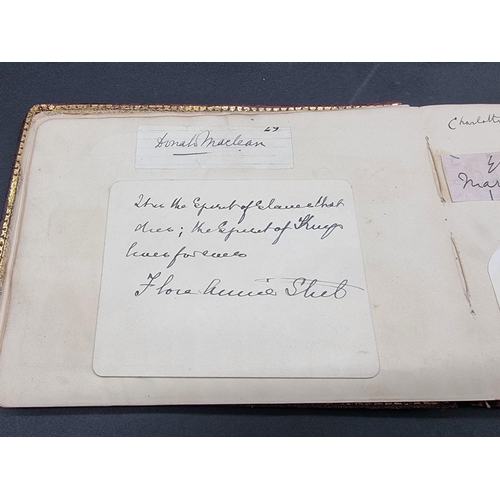 Donald Maclean
It is the Spirit of Slaves that
dies; the Spirit of Kings
lives for ever
Flora Annie Steel
Charlotte
Mar